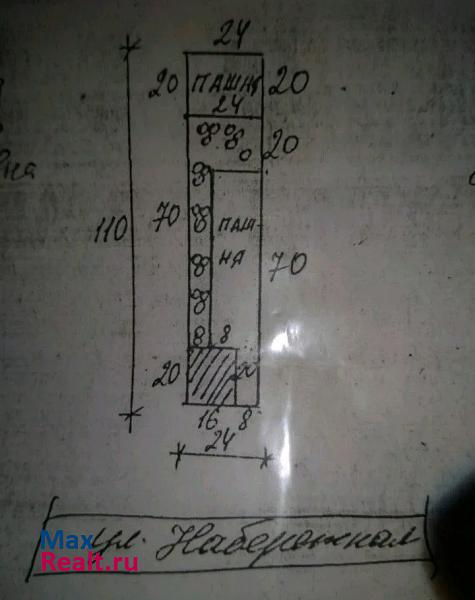 24
20 ПАШНЯ 20
24
20
110 70 ПАШ-
НЯ 70
8
20 20
16 8
24
ул. Набережная
MaxRealt.ru